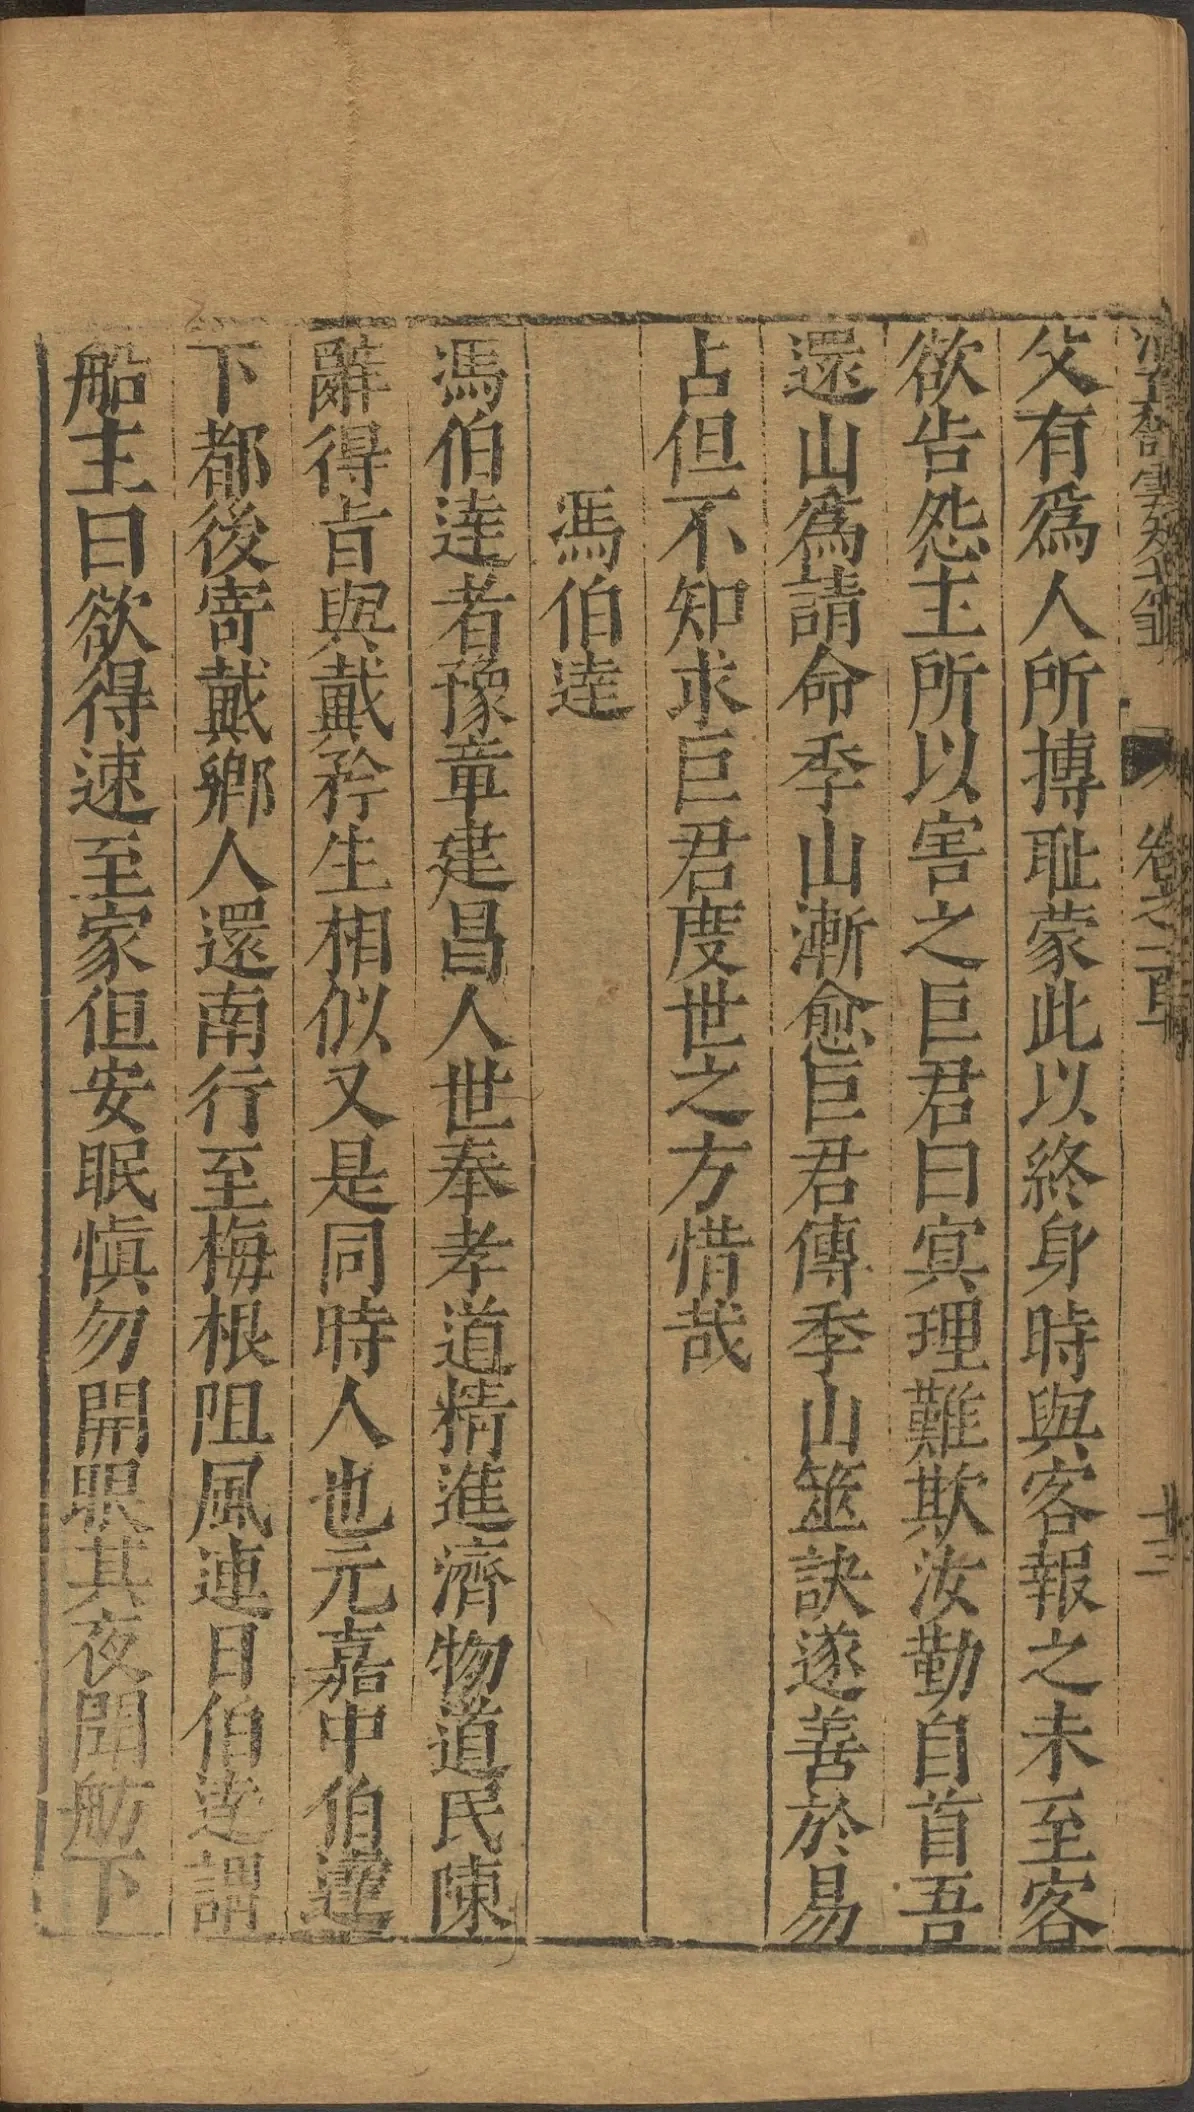 父有爲人所摶耻蒙此以終身時與客報之未至客
欲告怨主所以害之巨君曰㝠理難欺汝勤自首吾
還山爲請命季山漸愈巨君傳季山筮訣遂善於易
占但不知求巨君度世之方惜哉
馮伯逹
馮伯逹者豫章建昌人世奉孝道精進濟物道民陳
辭得㫖與戴矜生相似又是同時人也元嘉中伯逹
下都後寄戴鄉人還南行至梅根阻風連日伯逹謂
船主曰欲得速至家但安眠慎勿開眼其夜聞舫下